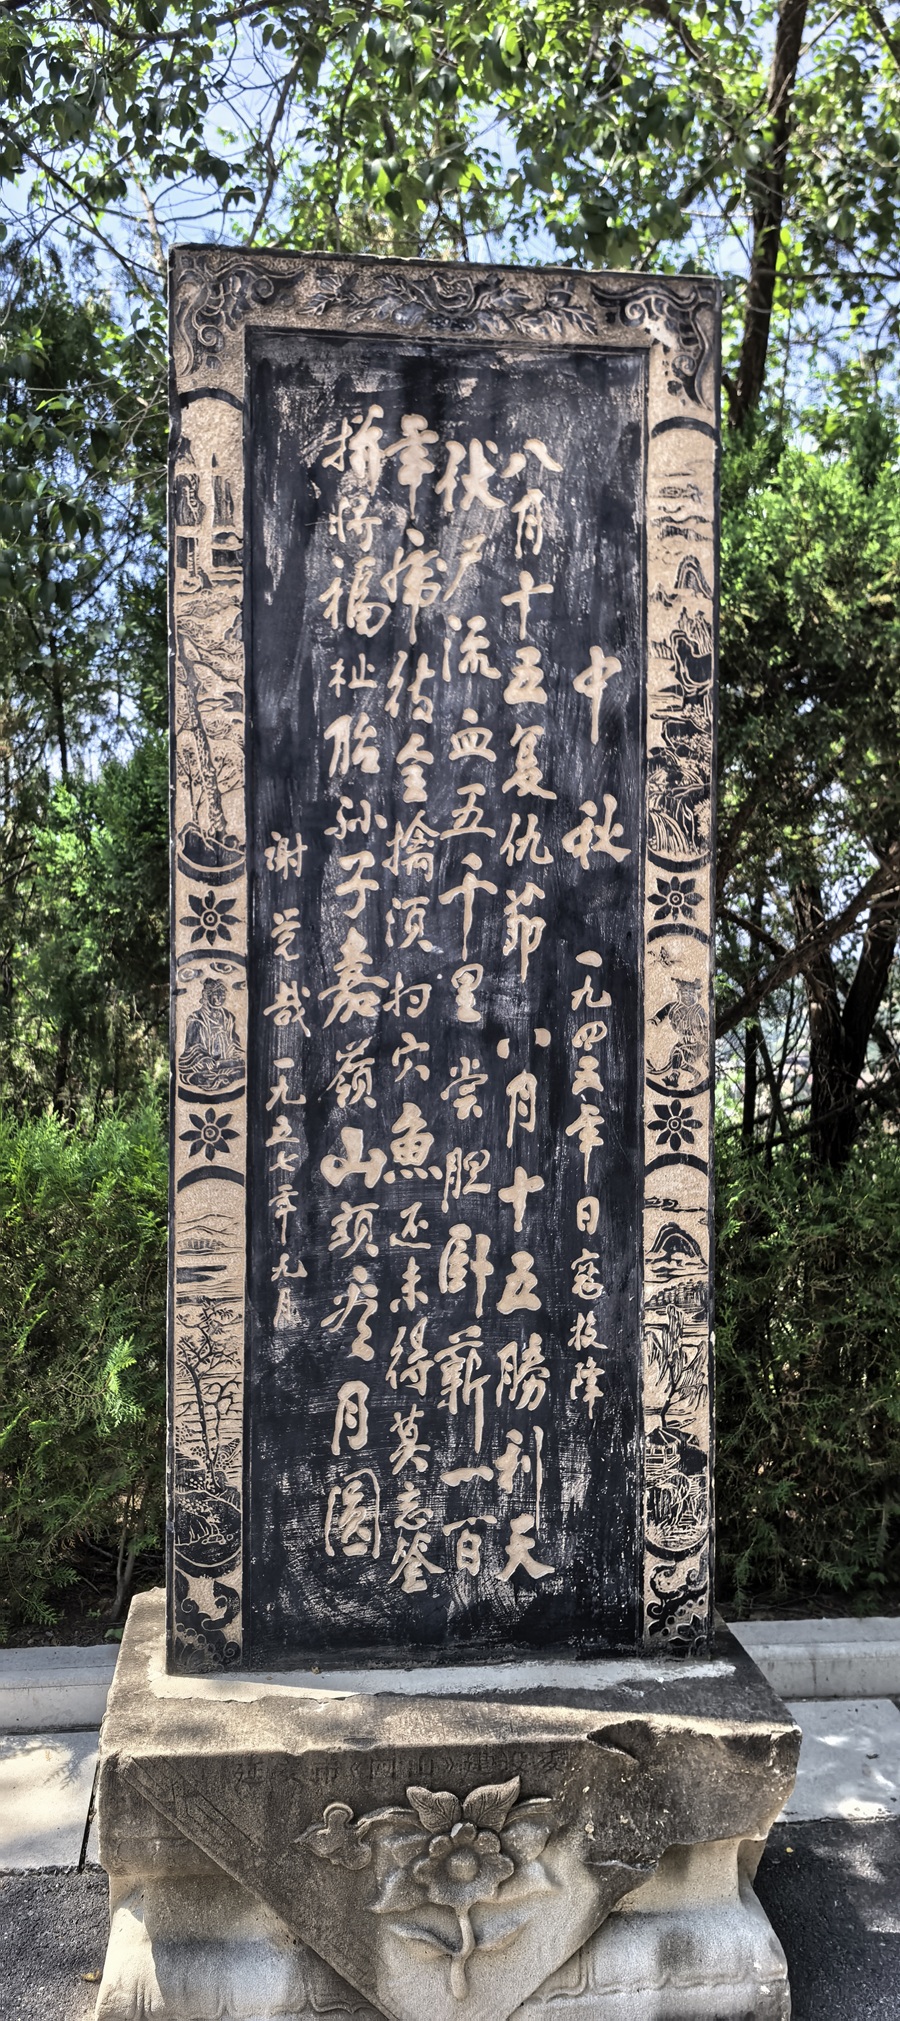 中秋 一九四五年日寇投降
八月十五复仇節 八月十五勝利天
伏尸流血五千里 尝胆卧薪一百
年 虎待全擒须扫穴 魚还未得莫忘筌
拼将福祉贻孙子 嘉嶺山頭看月圓
谢觉哉 一九五七年九月
延安市《两山》建设委